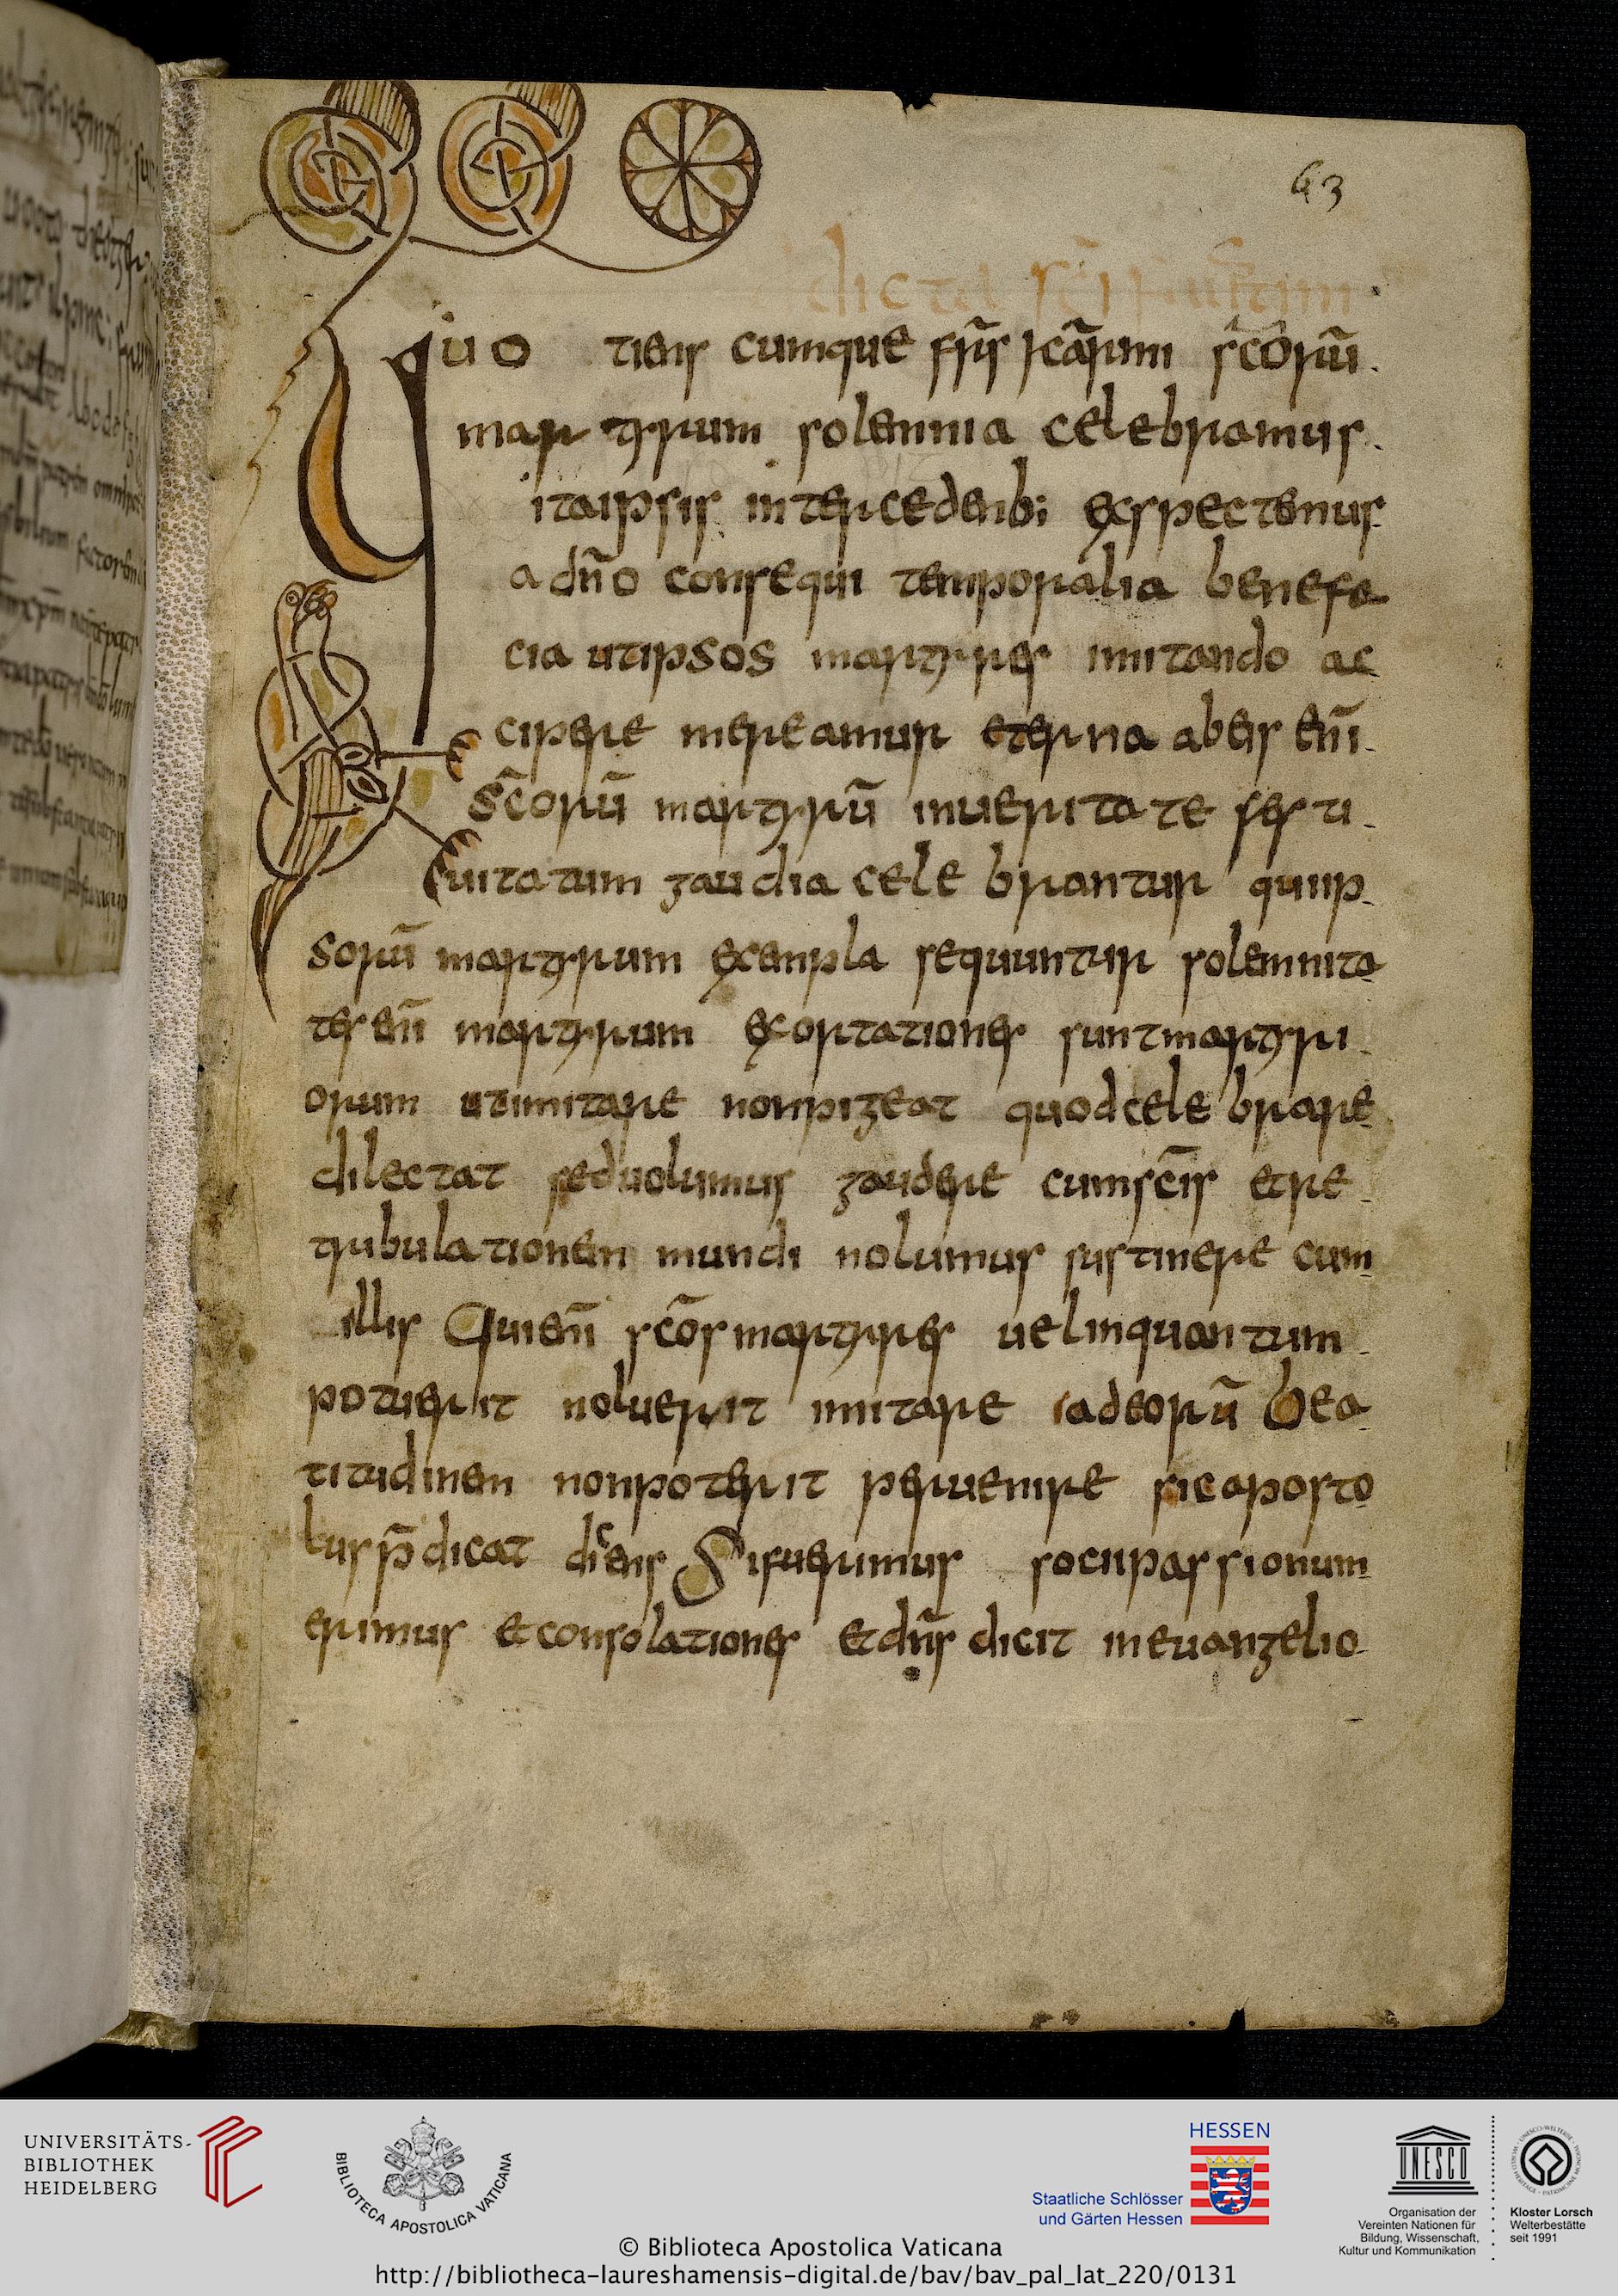 63
dicta sc̄i faustini
Quo tiens cumque fr̄s kār̄um sc̄orū
martyrum solemnia celebramus
ita ipsis intercedentib; exspectemus
a dn̄o consequi temporalia benefi
cia ut ipsos martyres imitando ac
cipere mereamur eterna ab eis en̄i
sc̄orū martyrū in ueritate festi
uitatum gaudia celebrantur qui ip
sorū martyrum exempla sequuntur solemnita
tes en̄i martyrum exortationes sunt martyri
orum ut imitare non pigeat quod celebrare
dilectat sed uolumus gaudere cum sc̄is et re
tribulationem mundi nolumus sustinere cum
illis Qui en̄i sc̄os martyres uel in quantum
potuerit noluerit imitare ad eorū bea
titudinem non poterit peruenire sic aposto
lus p̄dicat dicens Si fuerimus socii passionum
erimus et consolationes et dn̄s dicit in euangelio
UNIVERSITÄTS-
BIBLIOTHEK
HEIDELBERG
BIBLIOTECA APOSTOLICA VATICANA
HESSEN
Staatliche Schlösser
und Gärten Hessen
UNESCO
Organisation der
Vereinten Nationen für
Bildung, Wissenschaft,
Kultur und Kommunikation
Kloster Lorsch
Welterbestätte
seit 1991
© Biblioteca Apostolica Vaticana
http://bibliotheca-laureshamensis-digital.de/bav/bav_pal_lat_220/0131